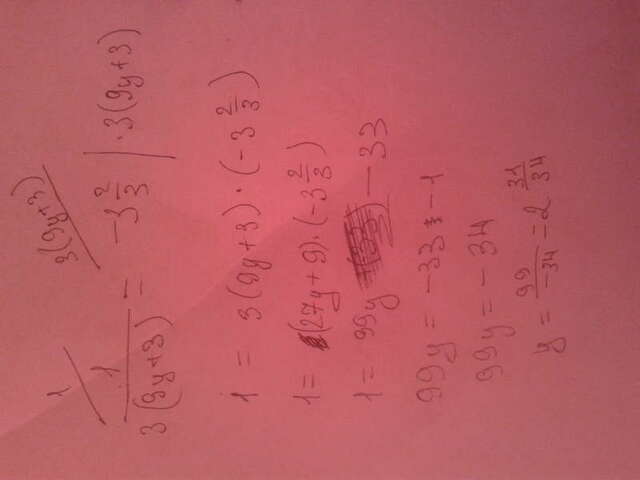 1 3(9y+3)
1/(3(9y+3)) = -3 2/3 | · 3(9y+3)
1 = 3(9y+3) · (-3 2/3)
1 = (27y+9) · (-3 2/3)
1 = 99y - 33
99y = -33 - 1
99y = -34
y = 99/-34 = 2 31/34